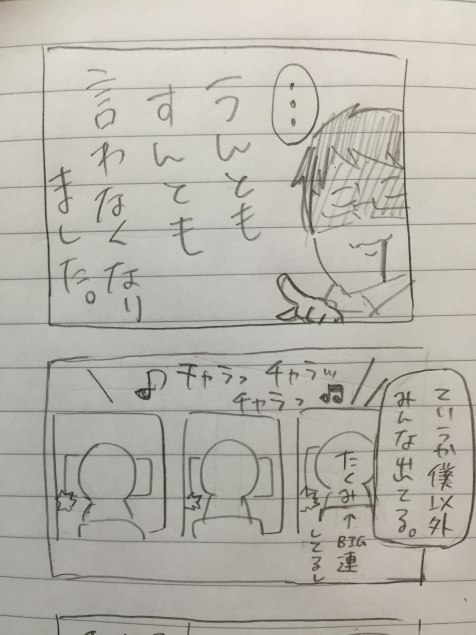 …
うんとも
すんとも
言わなくなり
ました。
ていうか僕以外
みんな出てる。
チャラッ チャラッ
チャラッ
たくみ↑
BIG連
してるし